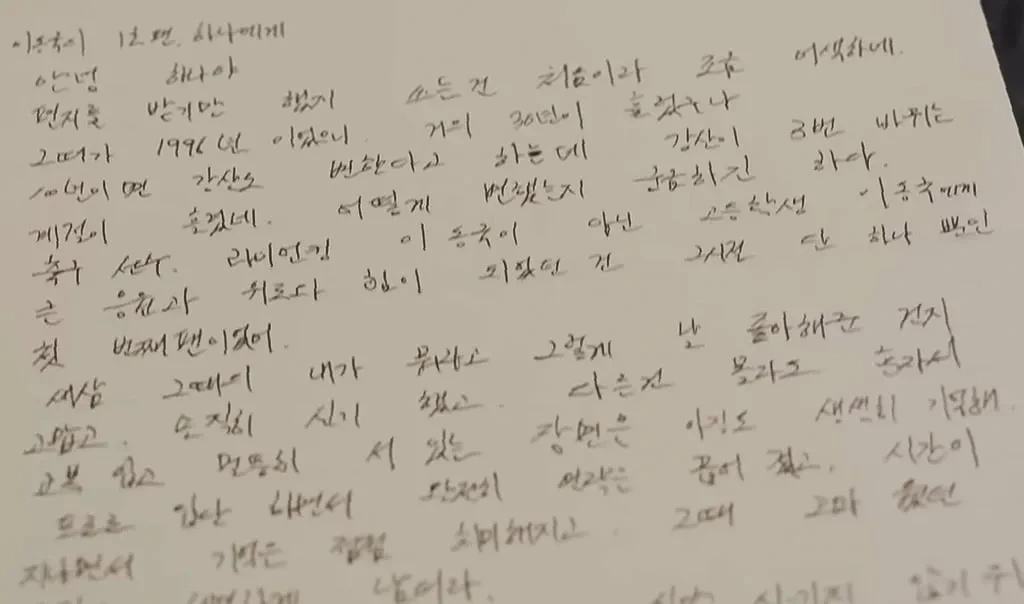 이동국이 1호팬. 하나에게
안녕 하나야
편지를 받기만 했지 쓰는건 처음이라 조금 어색하네.
그때가 1996년 이었으니. 거의 30년이 흘렀구나
10년이면 강산도 변한다고 하는데 강산이 3번 바뀌는
계절이 흘렀네. 어떻게 변했는지 궁금하긴 하다.
축구 선수. 라이언킹 이동국이 아닌 고등학생 이동국에게
큰 응원과 위로다 힘이 되었던 건 그시절 단 하나 뿐인
첫 번째팬이었어.
새삼 그때의 내가 뭐라고 그렇게 날 좋아해준 건지
고맙고. 솔직히 신기 했고. 다른건 몰라도 혼자서
교복 입고 멀뚱히 서 있는 장면은 아직도 생생히 기억해.
프로로 입단 하면서 완전히 연락은 끊어 졌고. 시간이
지나면서 기억은 점점 희미해지고. 그때 고마 웠던
남더라.